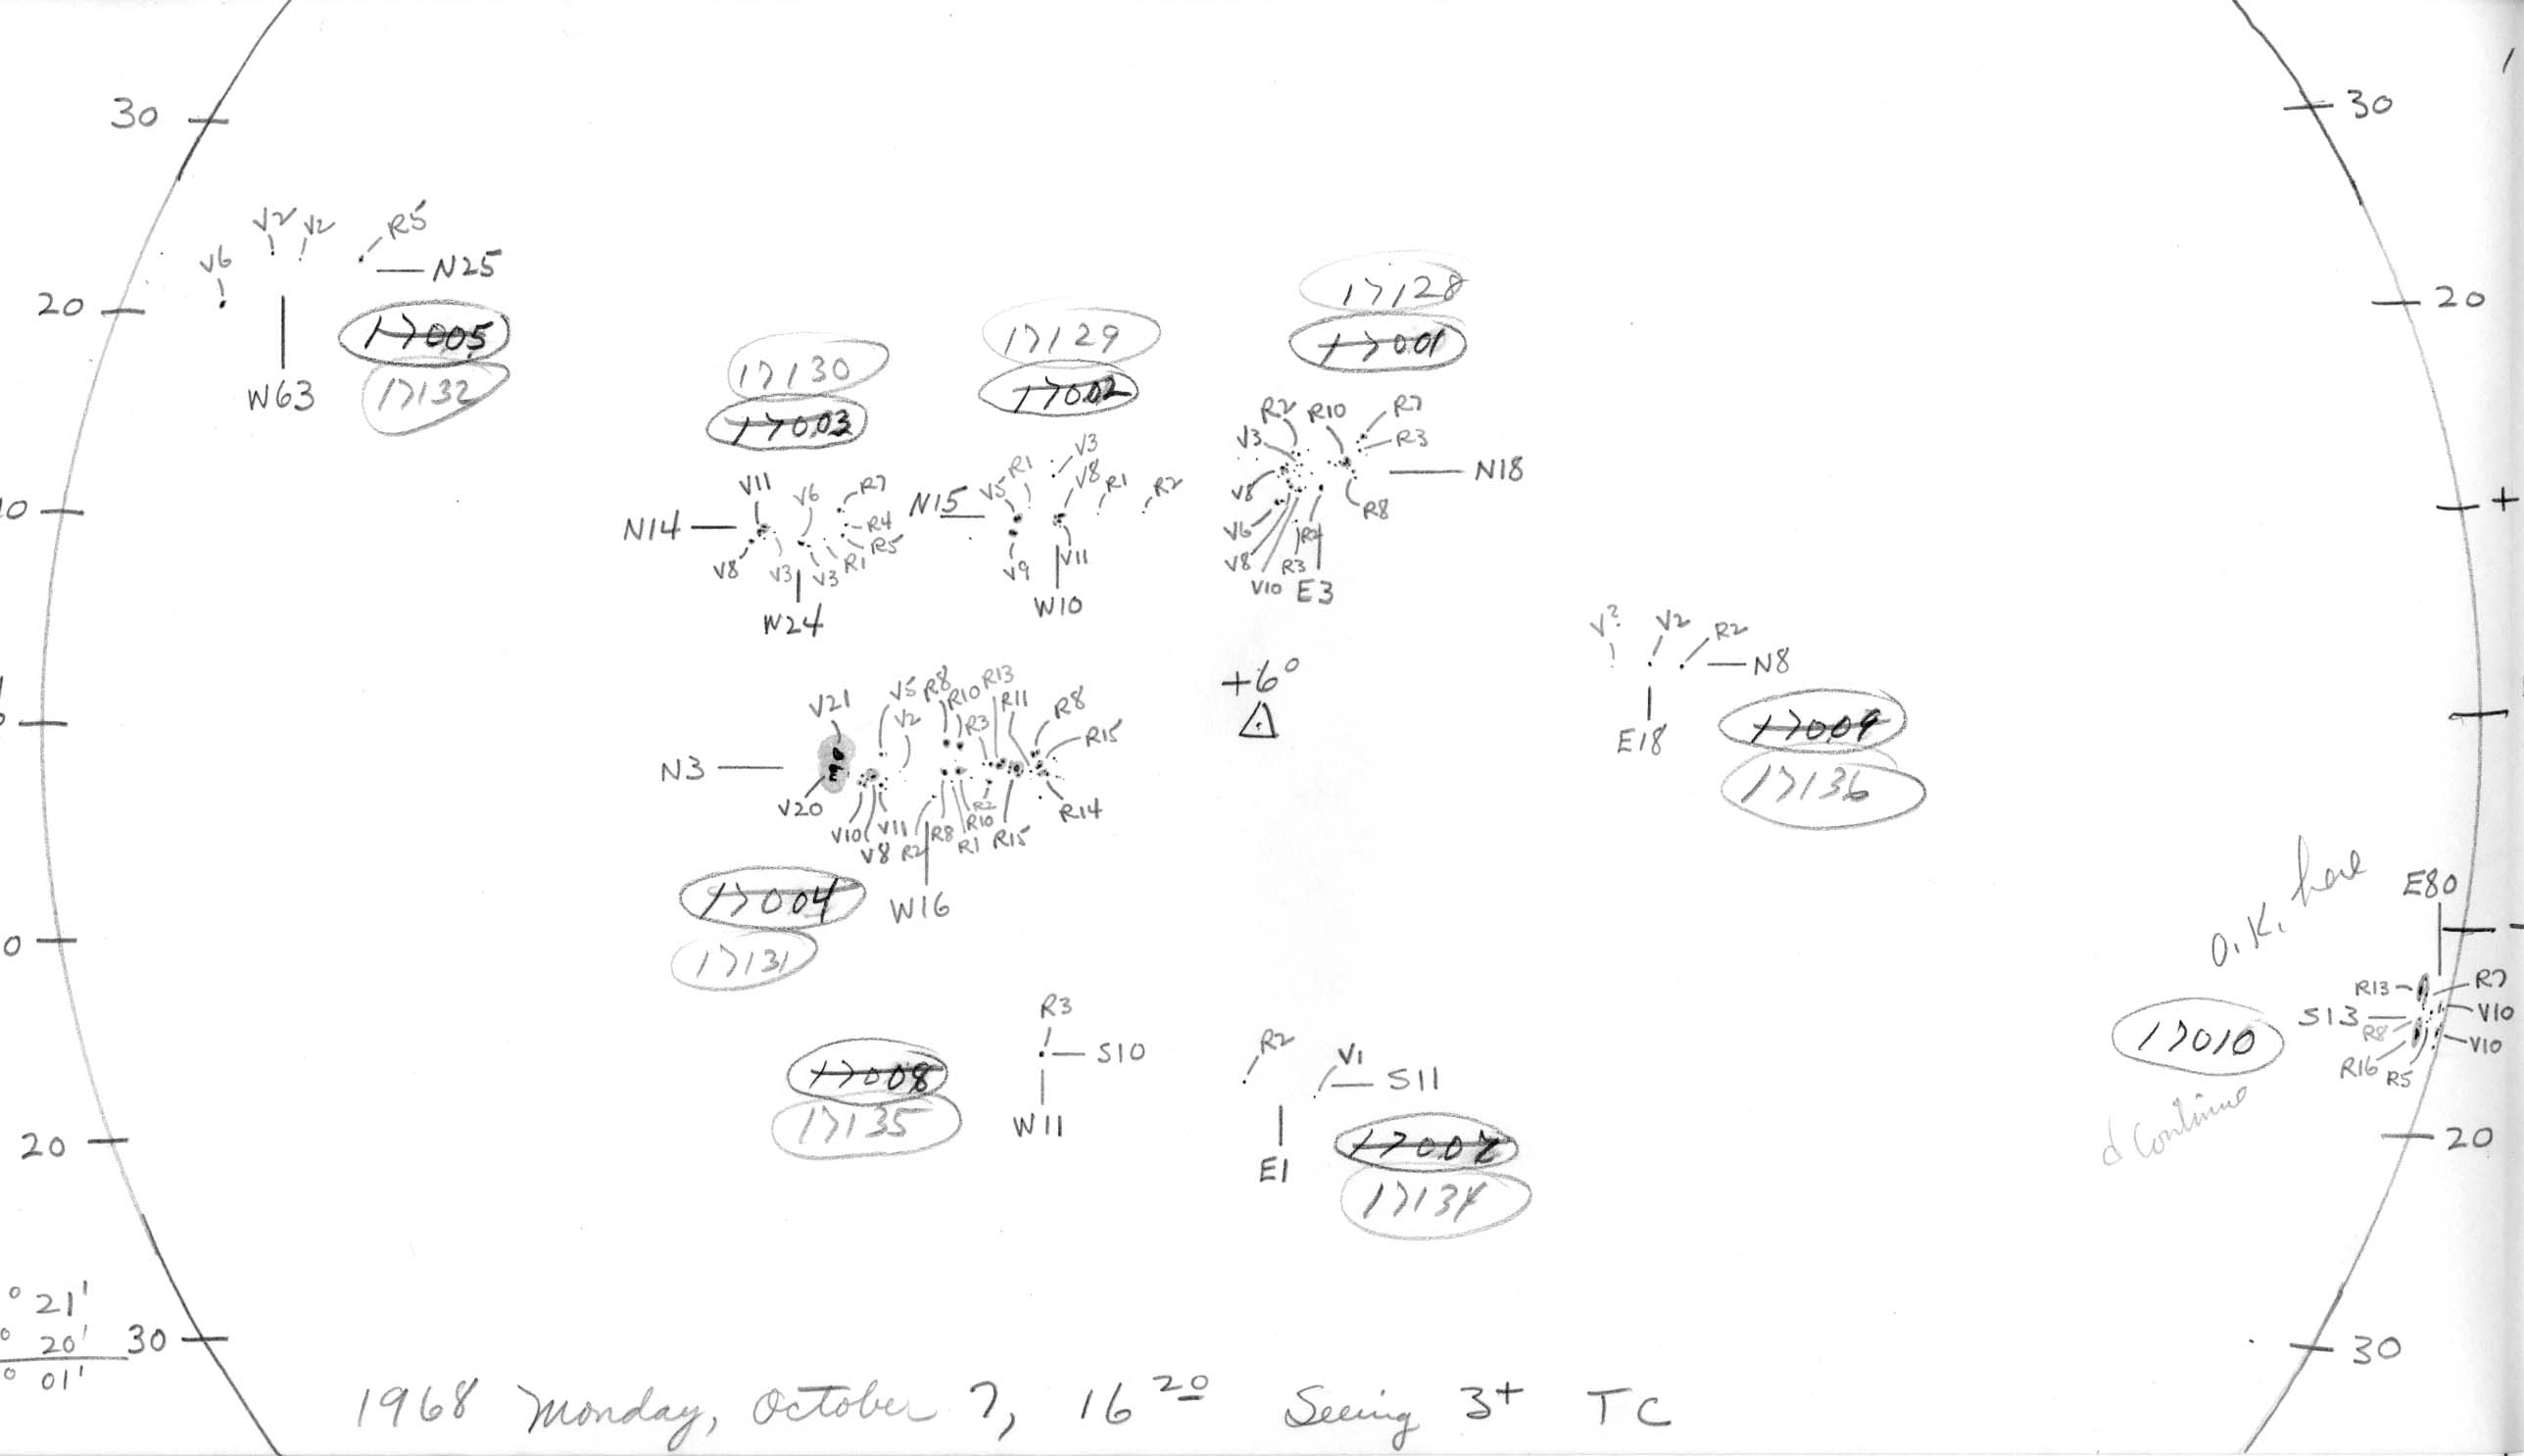 30
30
V2 V2 R5
V6
N25
20
17005
W63
17132
17130
17003
17129
17002
17128
17001
20
R2 R10 R7
V3 R3
N18
V8 R8
V6 R2
V8 R3
V10 E3
V11 V6 R7
N14 R4
R5
V8 V3 V3 R1
W24
N15 V5 R1 V3
V8 R1 R2
V9 V11
W10
10
+
V? V2 R2
N8
E18
17009
17136
+6°
V21 V5 R8 R10 R13
V2 R3 R11 R8
R15
N3
V20 R2 R14
V10 V11 R8 R10
V8 R2 R1 R15
W16
17004
17131
0
O.K. here
E80
R13 R7
S13 V10
R8 V10
R16 R5
17010
d continue
R3
S10
W11
17008
17135
R2 V1
S11
E1
17007
17134
20
20
° 21'
° 20'
° 01'
30
30
1968 Monday, October 7, 16 20 Seeing 3+ TC